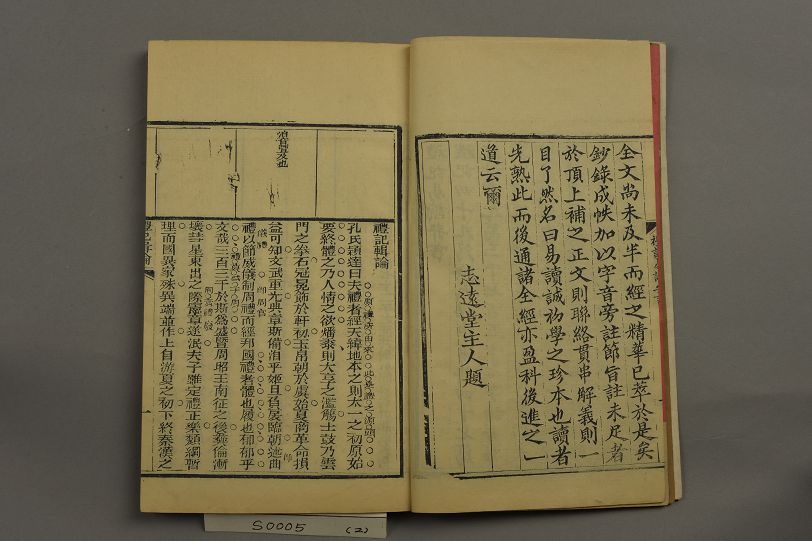 全文尚未及半而經之精華已萃於是矣
鈔錄成帙加以字音旁註節旨註未足者
於頂上補之正文則聯絡貫串解義則一
目了然名曰易讀誠初學之珍本也讀者
先熟此而後通諸全經亦盈科後進之一
道云爾
志遠堂主人題
禮記輯論
孔氏穎達曰夫禮者經天緯地本之則太一之初原始
要終體之乃人情之欲燔黍則大享之濫觴士鼓乃雲
門之拳石冠冕飾於軒初玉帛朝於虞始夏商革命損
益可知文武重光典章斯備洎乎姬旦負扆臨朝述曲
禮以節威儀制周禮而經邦國禮者體也履也郁郁乎
文哉三百三千於斯為盛暨周昭王南征之後彝倫漸
壞彗星東出之際憲章遂泯夫子雖定禮正樂頹綱暫
理而國異家殊異端並作上自游夏之初下終秦漢之
S0005 (2)